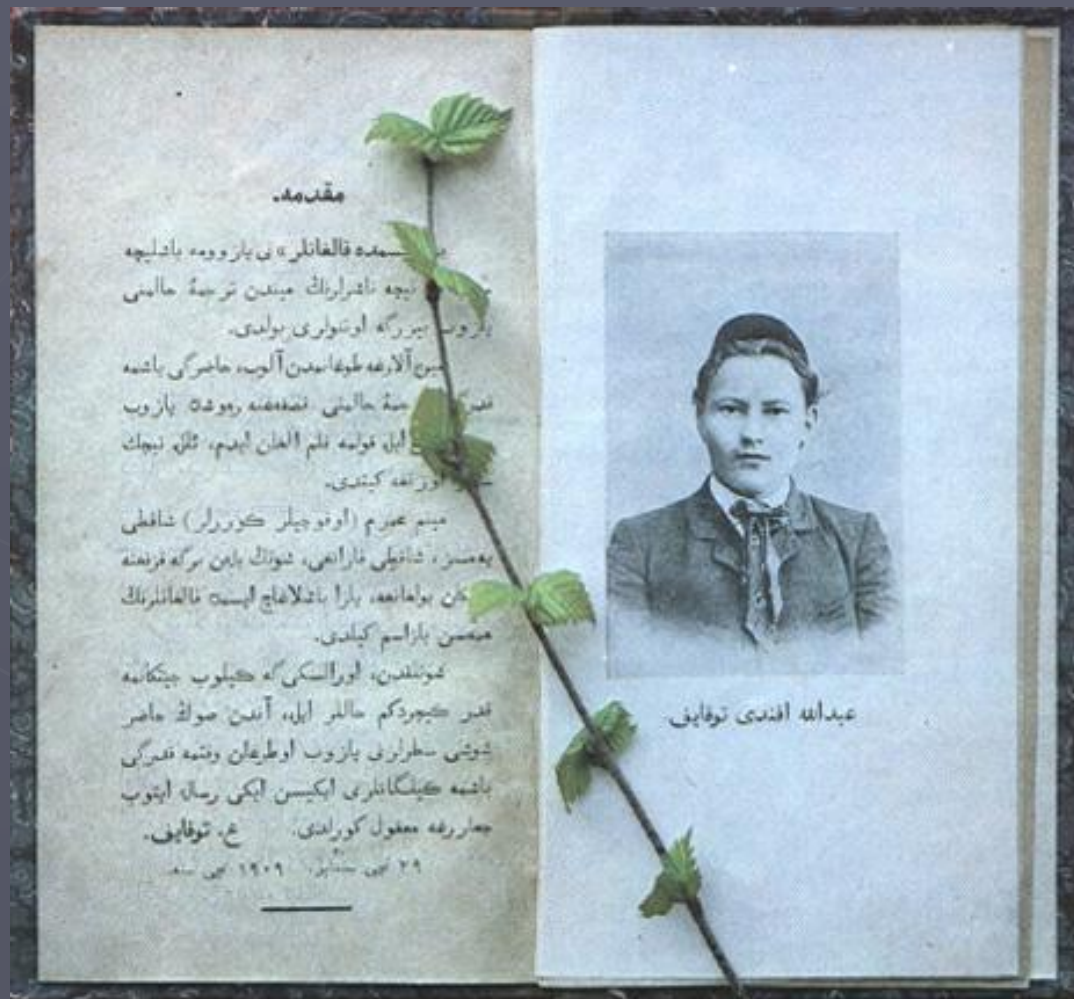 مقدمه.
قالغانلر» نی یازوومه باشلیچه
نیچه ناشرلرنڭ میندن ترجمۀ حالمنی
بیررگه اوتنولری بولدی.
مین آلارغه طوغانمدن آلوب، حاضرگی باشمه
حالمنی یازوب
ایله قولمه قلم آلغان ایدم،
کیتدی.
مینم عمرم (اوقوچیلر کوررلر) شاقطی
شاقطی قارانغی، شونڭ بلەن برگه
بولغانغه، یازا باشلاغاچ ایسمده قالغانلرنڭ
همه‌سن یازاسم کیلدی.
شونلقدن، اورالسکی گه کیلوب جیتکانمه
قدر کیچردکم حاللر ایله، آندن صوڭ حاضر
شوشی سطرلرنی یازوب اوطرغان وقتمه قدرگی
باشمه کیلگانلرنی ایکیسن ایکی رساله ایتوب
چغاررغه معقول کورلدی. ع. توقایف.
٢٩ نچی سنتابر، ١٩٠٩ نچی سنه.
عبدالله افندی توقایف